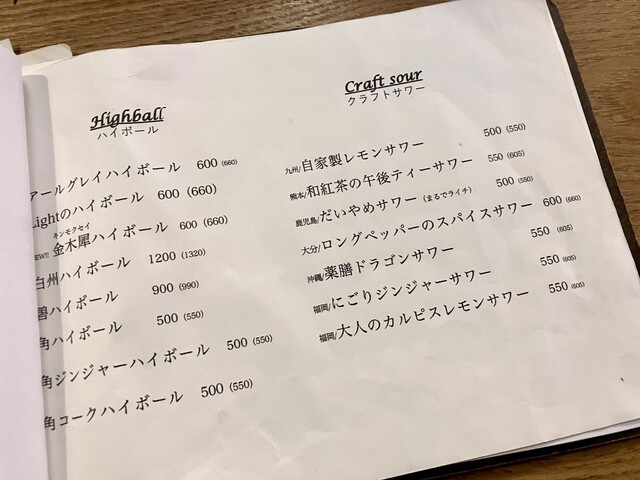 Highball
ハイボール
アールグレイハイボール 600 (660)
Lightのハイボール 600 (660)
キンモクセイ
NEW!! 金木犀ハイボール 600 (660)
白州ハイボール 1200 (1320)
ハイボール 900 (990)
角ハイボール 500 (550)
角ジンジャーハイボール 500 (550)
角コークハイボール 500 (550)
Craft sour
クラフトサワー
九州/自家製レモンサワー 500 (550)
熊本/和紅茶の午後ティーサワー 550 (605)
鹿児島/だいやめサワー (まるでライチ) 500 (550)
大分/ロングペッパーのスパイスサワー 600 (660)
沖縄/薬膳ドラゴンサワー 550 (605)
福岡/にごりジンジャーサワー 550 (605)
福岡/大人のカルピスレモンサワー 550 (605)